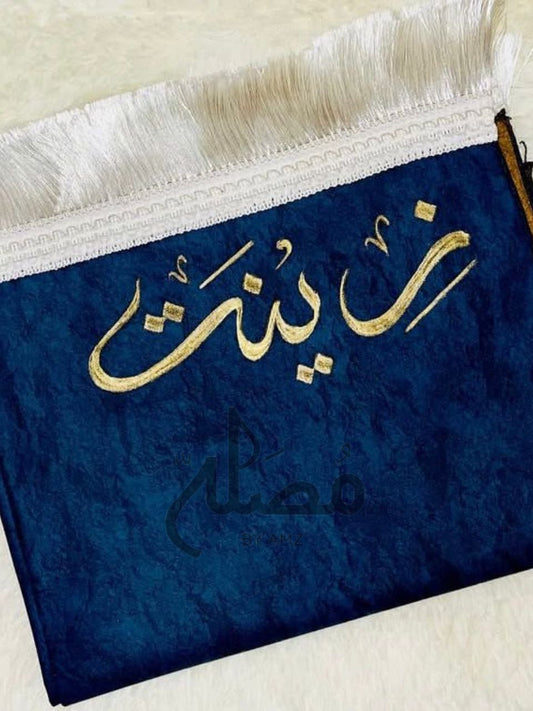 زينت
مُصَلّى